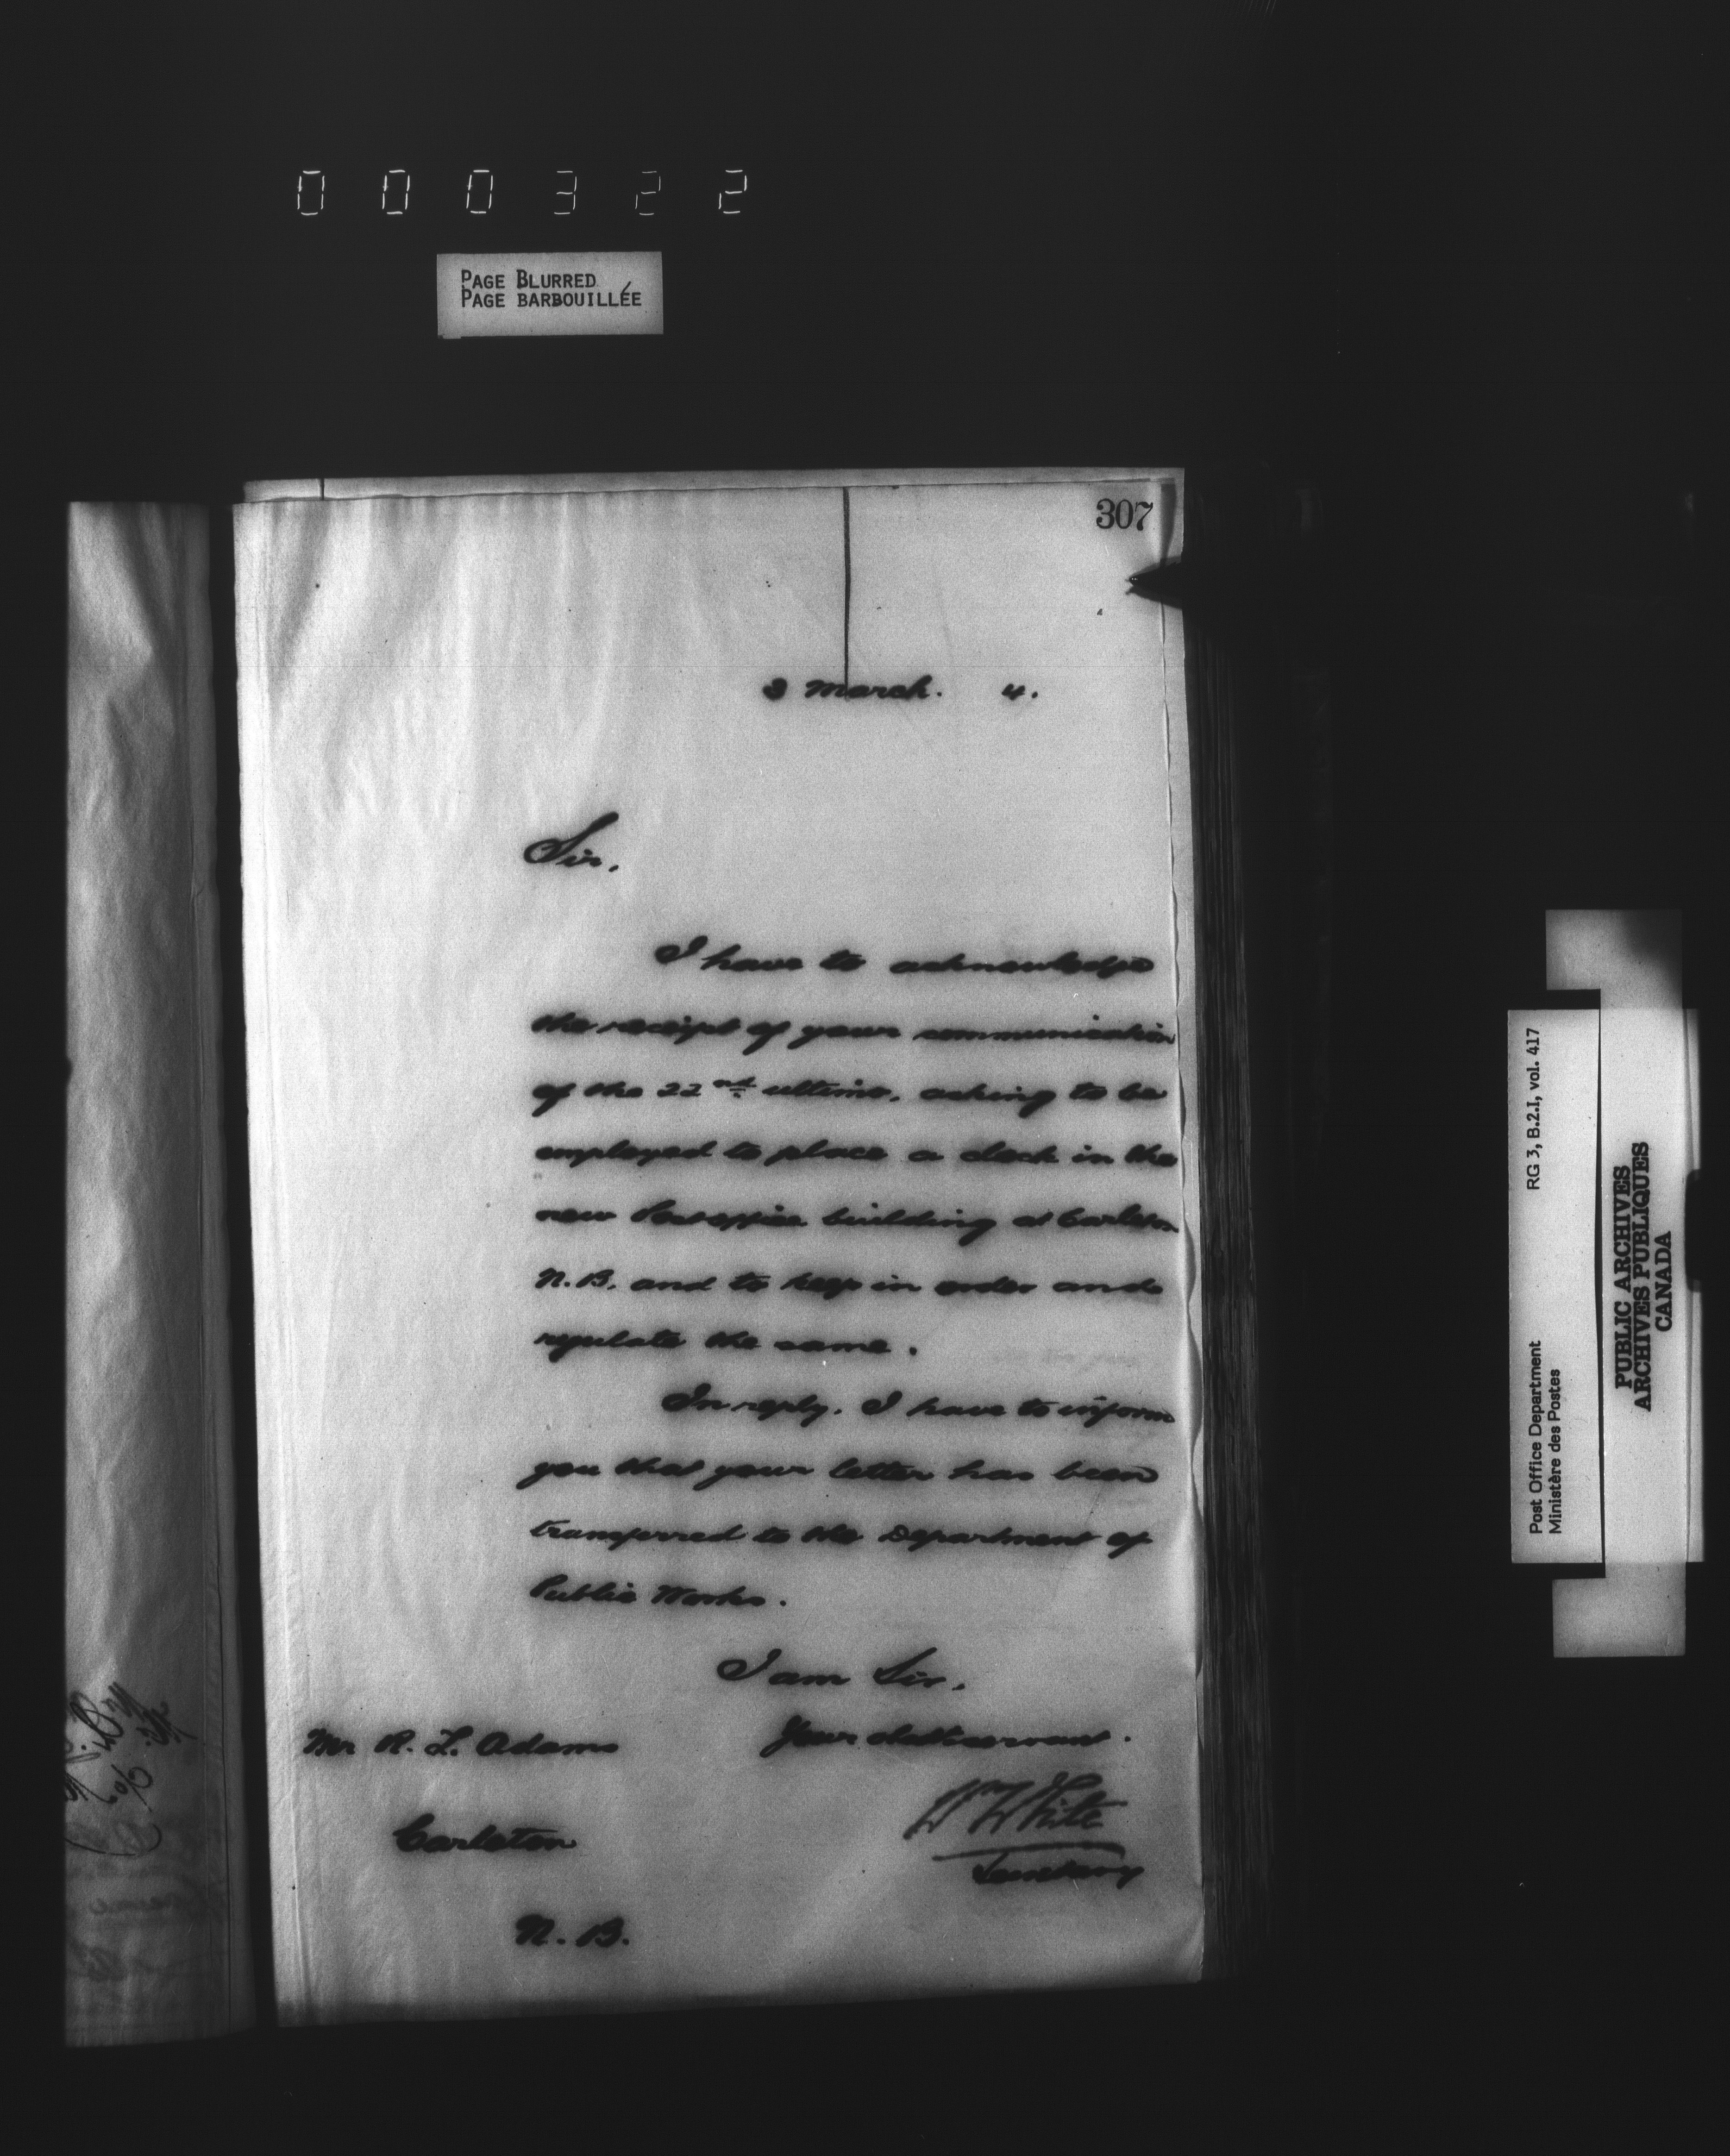 000322
PAGE BLURRED
PAGE BARBOUILLÉE
307
3 March. 4.
Sir,
I have to acknowledge
the receipt of your communication
of the 22nd ultimo, asking to be
employed to place a clock in the
new Post office building at Carleton
N.B. and to keep in order and
regulate the same.
In reply, I have to inform
you that your letter has been
transferred to the Department of
Public Works.
I am Sir,
Your obdt servant.
Mr R. L. Adams
Wm White
Secretary
Carleton
N.B.
RG 3, B.2.I, vol. 417
Post Office Department
Ministère des Postes
PUBLIC ARCHIVES
ARCHIVES PUBLIQUES
CANADA